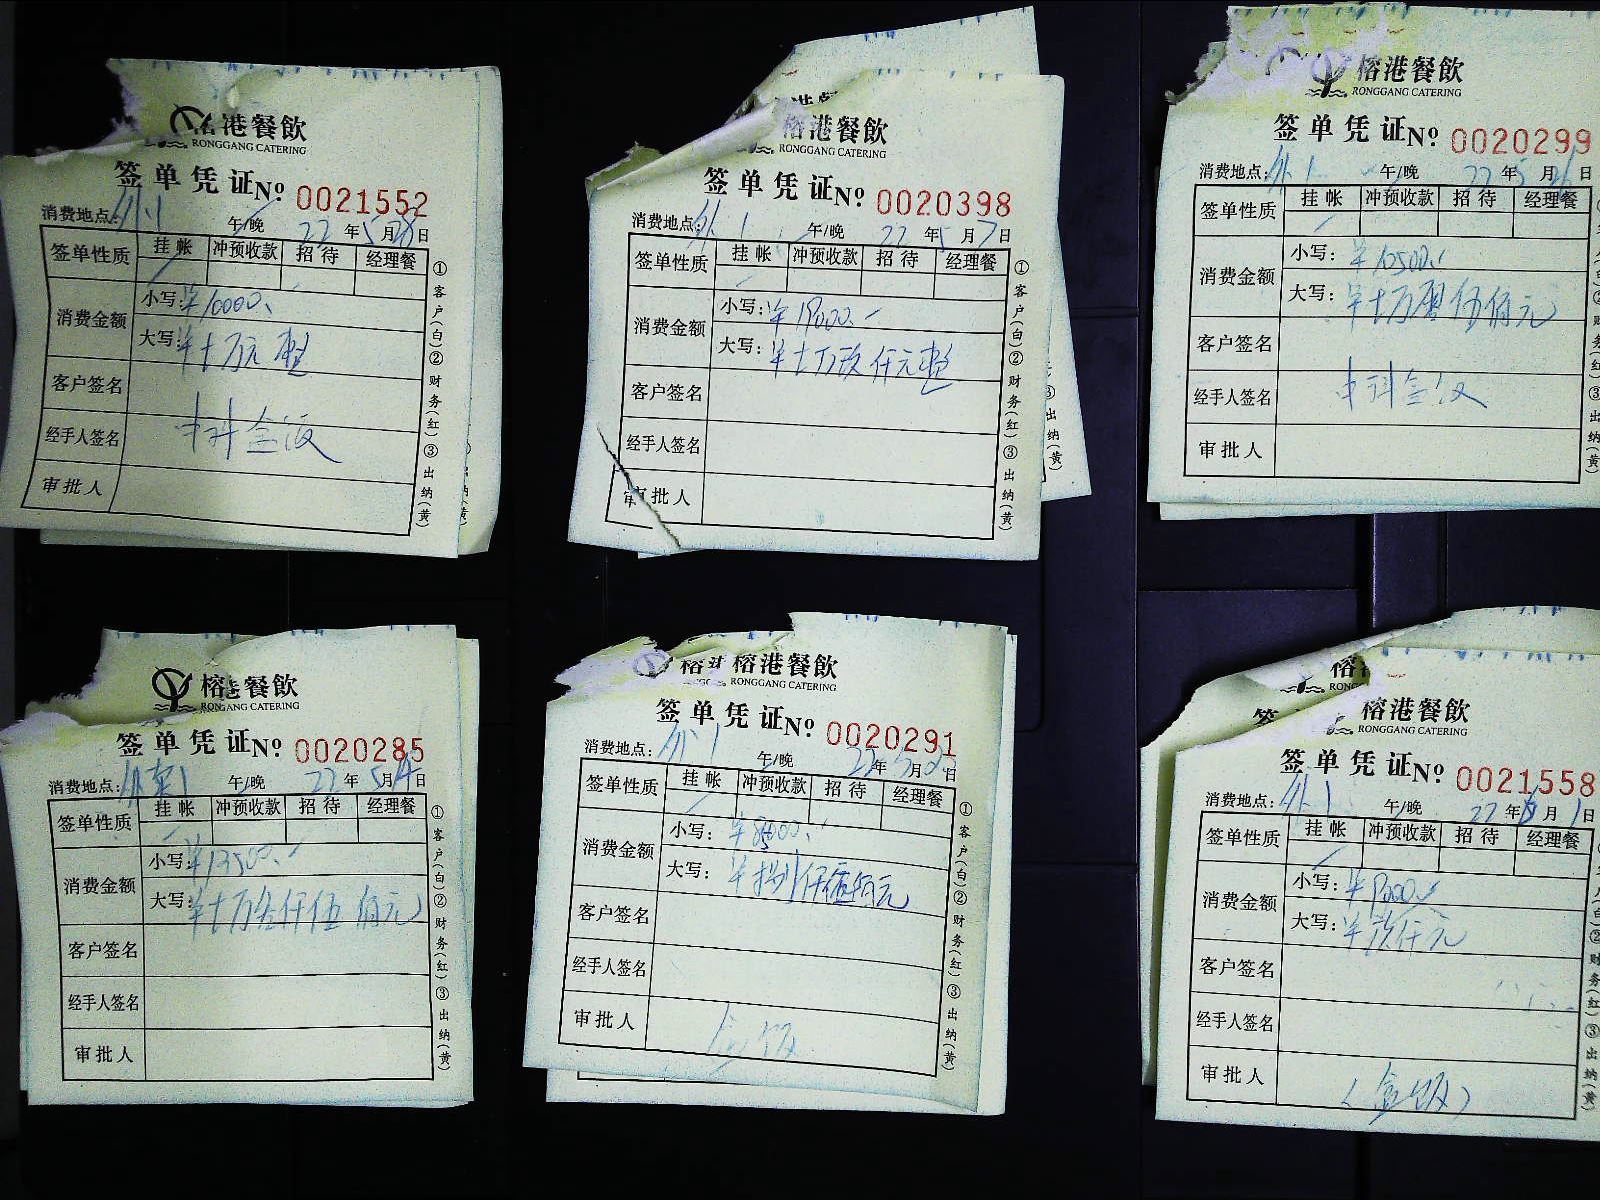 榕港餐飲
RONGGANG CATERING
签单凭证 No 0021552
消费地点：外1 午/晚 22年5月28日
签单性质 挂帐 冲预收款 招待 经理餐
消费金额 小写：¥10000.
大写：¥十万元整
客户签名
经手人签名
审批人
①客户(白)②财务(红)③出纳(黄)
榕港餐飲
RONGGANG CATERING
签单凭证 No 0020398
消费地点：外1 午/晚 22年5月7日
签单性质 挂帐 冲预收款 招待 经理餐
消费金额 小写：¥19000.
大写：¥十万玖仟元整
客户签名
经手人签名
审批人
①客户(白)②财务(红)③出纳(黄)
榕港餐飲
RONGGANG CATERING
签单凭证 No 0020299
消费地点：外1 午/晚 22年5月 日
签单性质 挂帐 冲预收款 招待 经理餐
消费金额 小写：¥10500.
大写：¥十万零伍佰元
客户签名
经手人签名
审批人
榕港餐飲
RONGGANG CATERING
签单凭证 No 0020285
消费地点： 午/晚 22年5月14日
签单性质 挂帐 冲预收款 招待 经理餐
消费金额 小写：¥13500.
大写：¥十万叁仟伍佰元
客户签名
经手人签名
审批人
①客户(白)②财务(红)③出纳(黄)
榕港餐飲
RONGGANG CATERING
签单凭证 No 0020291
消费地点：外1 午/晚 22年5月 日
签单性质 挂帐 冲预收款 招待 经理餐
消费金额 小写：
大写：
客户签名
经手人签名
审批人
①客户(白)②财务(红)③出纳(黄)
榕港餐飲
RONGGANG CATERING
签单凭证 No 0021558
消费地点：外1 午/晚 22年6月1日
签单性质 挂帐 冲预收款 招待 经理餐
消费金额 小写：¥9000.
大写：¥玖仟元
客户签名
经手人签名
审批人